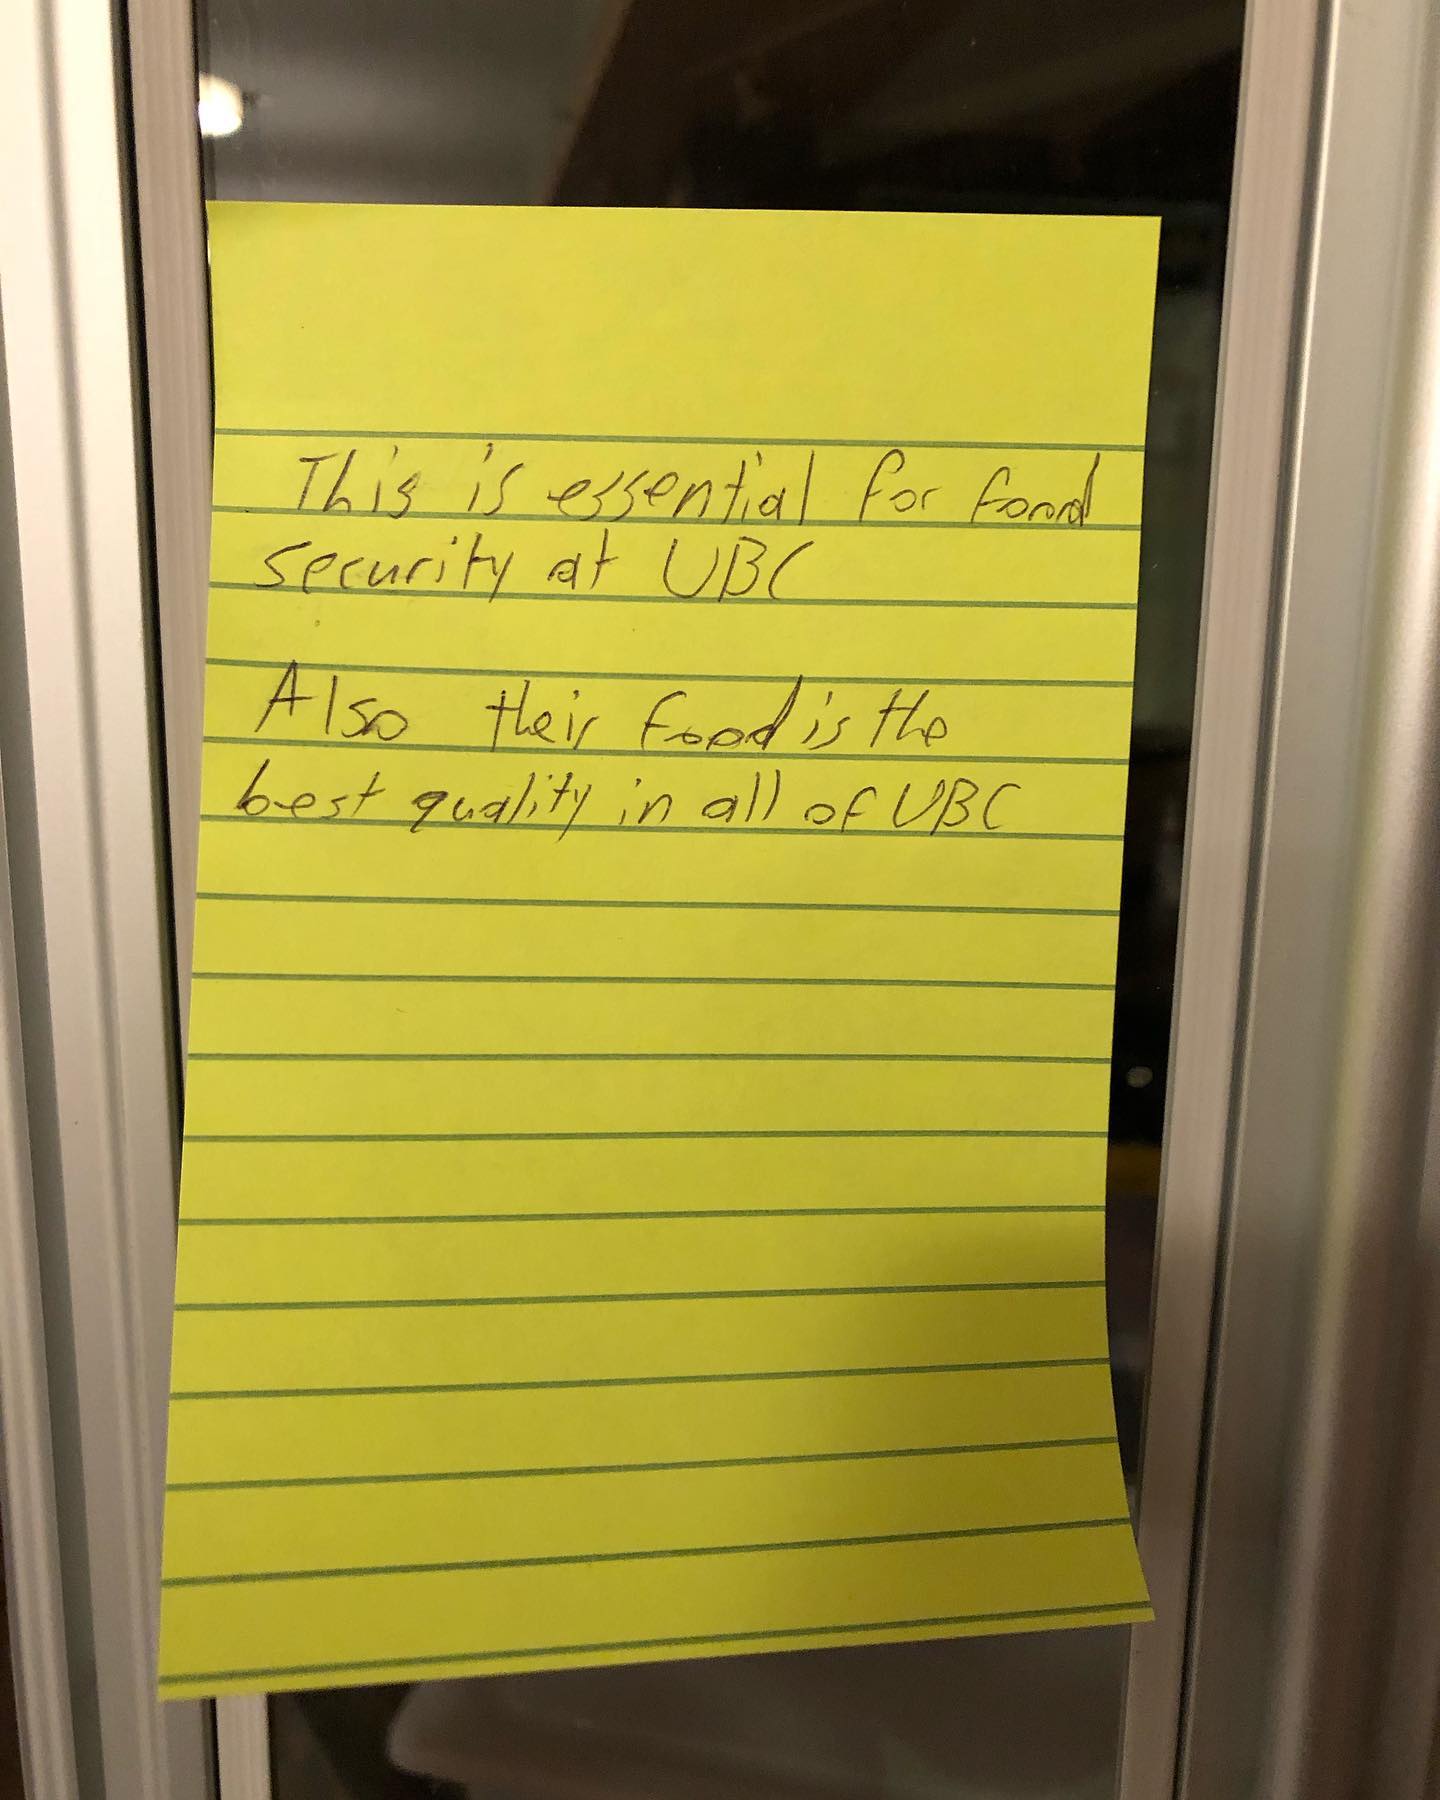 This is essential for food
security at UBC
Also their food is the
best quality in all of UBC